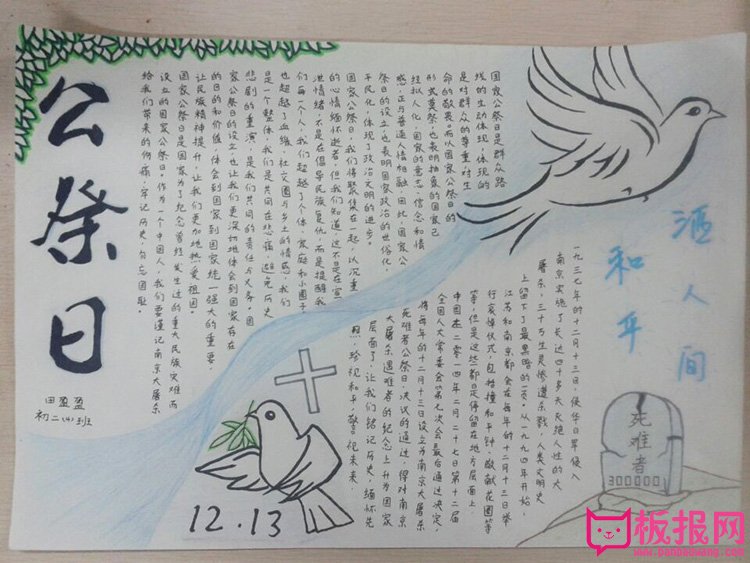 公祭日
田盈盈
初二(4)班
国家公祭日是群众路
线的生动体现,体现的
是对群众的尊重,对生
命的敬畏而以国家公祭日的
形式奠祭,也表明抽象的国家已
经拟人化,国家的意志、信念和情
感,正与普通人情相融,因此,国家公
祭日的设立,也表明国家政治的世俗化,
平民化,体现了政治文明的进步。
国家公祭日,我们将聚集在一起,以沉重
的心情缅怀逝者。但我们知道,这不是在宣
泄情绪,不是在倡导民族复仇,而是提醒我
们每一个人,我们超越了个体、家庭和小圈子
也超越了血缘、社交圈与乡土的情感,我们
是一个整体,我们是共同在悲痛,避免历史
悲剧的重演,是我们共同的责任与义务。国
家公祭日的设立,也让我们更深切地体会到国家存在
的目的和价值,体会到国家统一强大的重要,
让民族精神提升,让我们更加地热爱祖国。
国家公祭日是国家为了纪念曾经发生过的重大民族灾难而
设立的国家公祭日。作为一个中国人,我们要谨记南京大屠杀
给我们带来的伤痛,牢记历史,勿忘国耻。
洒人间
和平
一九三七年的十二月十三日,侵华日军侵入
南京实施了长达四十多天灭绝人性的大
屠杀,三十万生灵惨遭杀戮,人类文明史
上留下了最黑暗的一页,从一九九四年开始,
江苏和南京都会在每年的十二月十三日举
行哀悼仪式,包括撞和平钟,敬献花圈等
等,但是这些都是停留在地方层面上
中国在二零一四年二月二十七日第十二届
全国人大常委会第七次会最后通过决定,
将每年的十二月十三日设立为南京大屠杀
死难者公祭日,决议的通过,将对南京
大屠杀遇难者的纪念上升为国家
层面了,让我们铭记历史,缅怀先
烈,珍视和平,警示未来。
死难者
300000
12.13
板报网
www.banbaowang.com